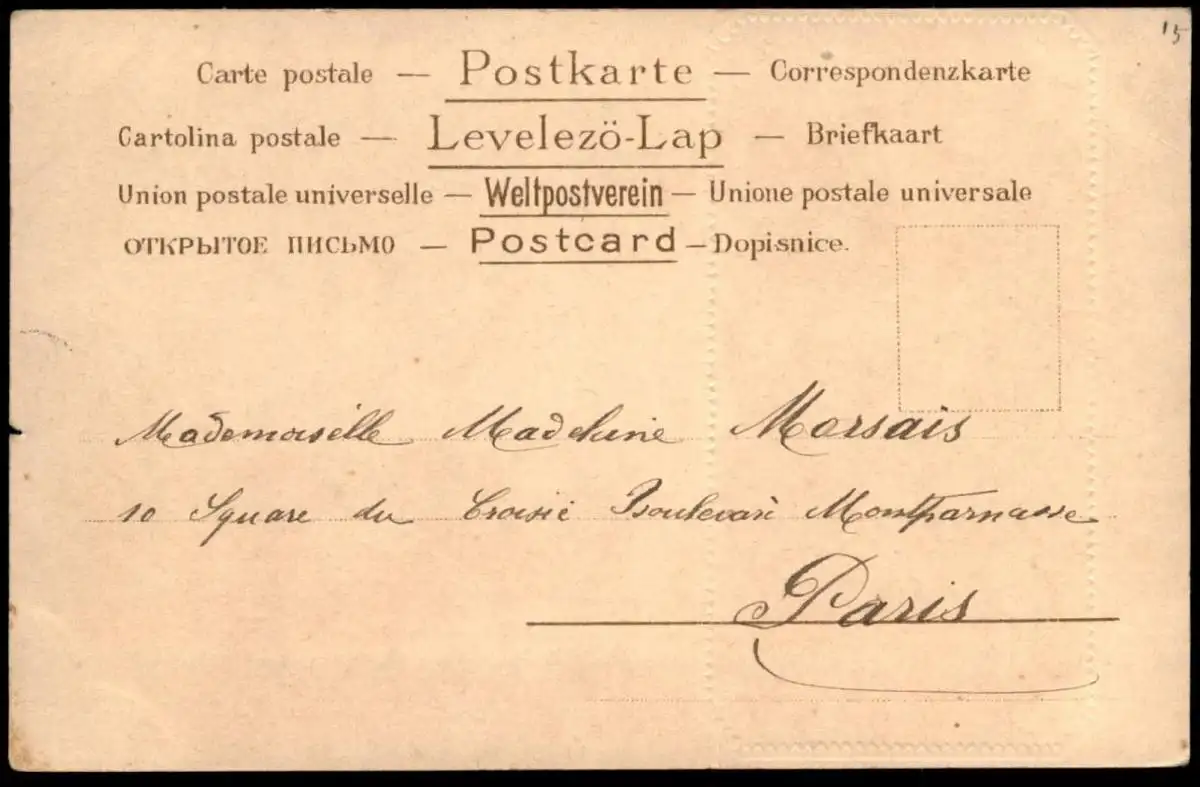 15
Carte postale — Postkarte — Correspondenzkarte
Cartolina postale — Levelezö-Lap — Briefkaart
Union postale universelle — Weltpostverein — Unione postale universale
ОТКРЫТОЕ ПИСЬМО — Postcard — Dopisnice.
Mademoiselle Madeleine Morsais
10 Square du Croisic Boulevard Montparnasse
Paris